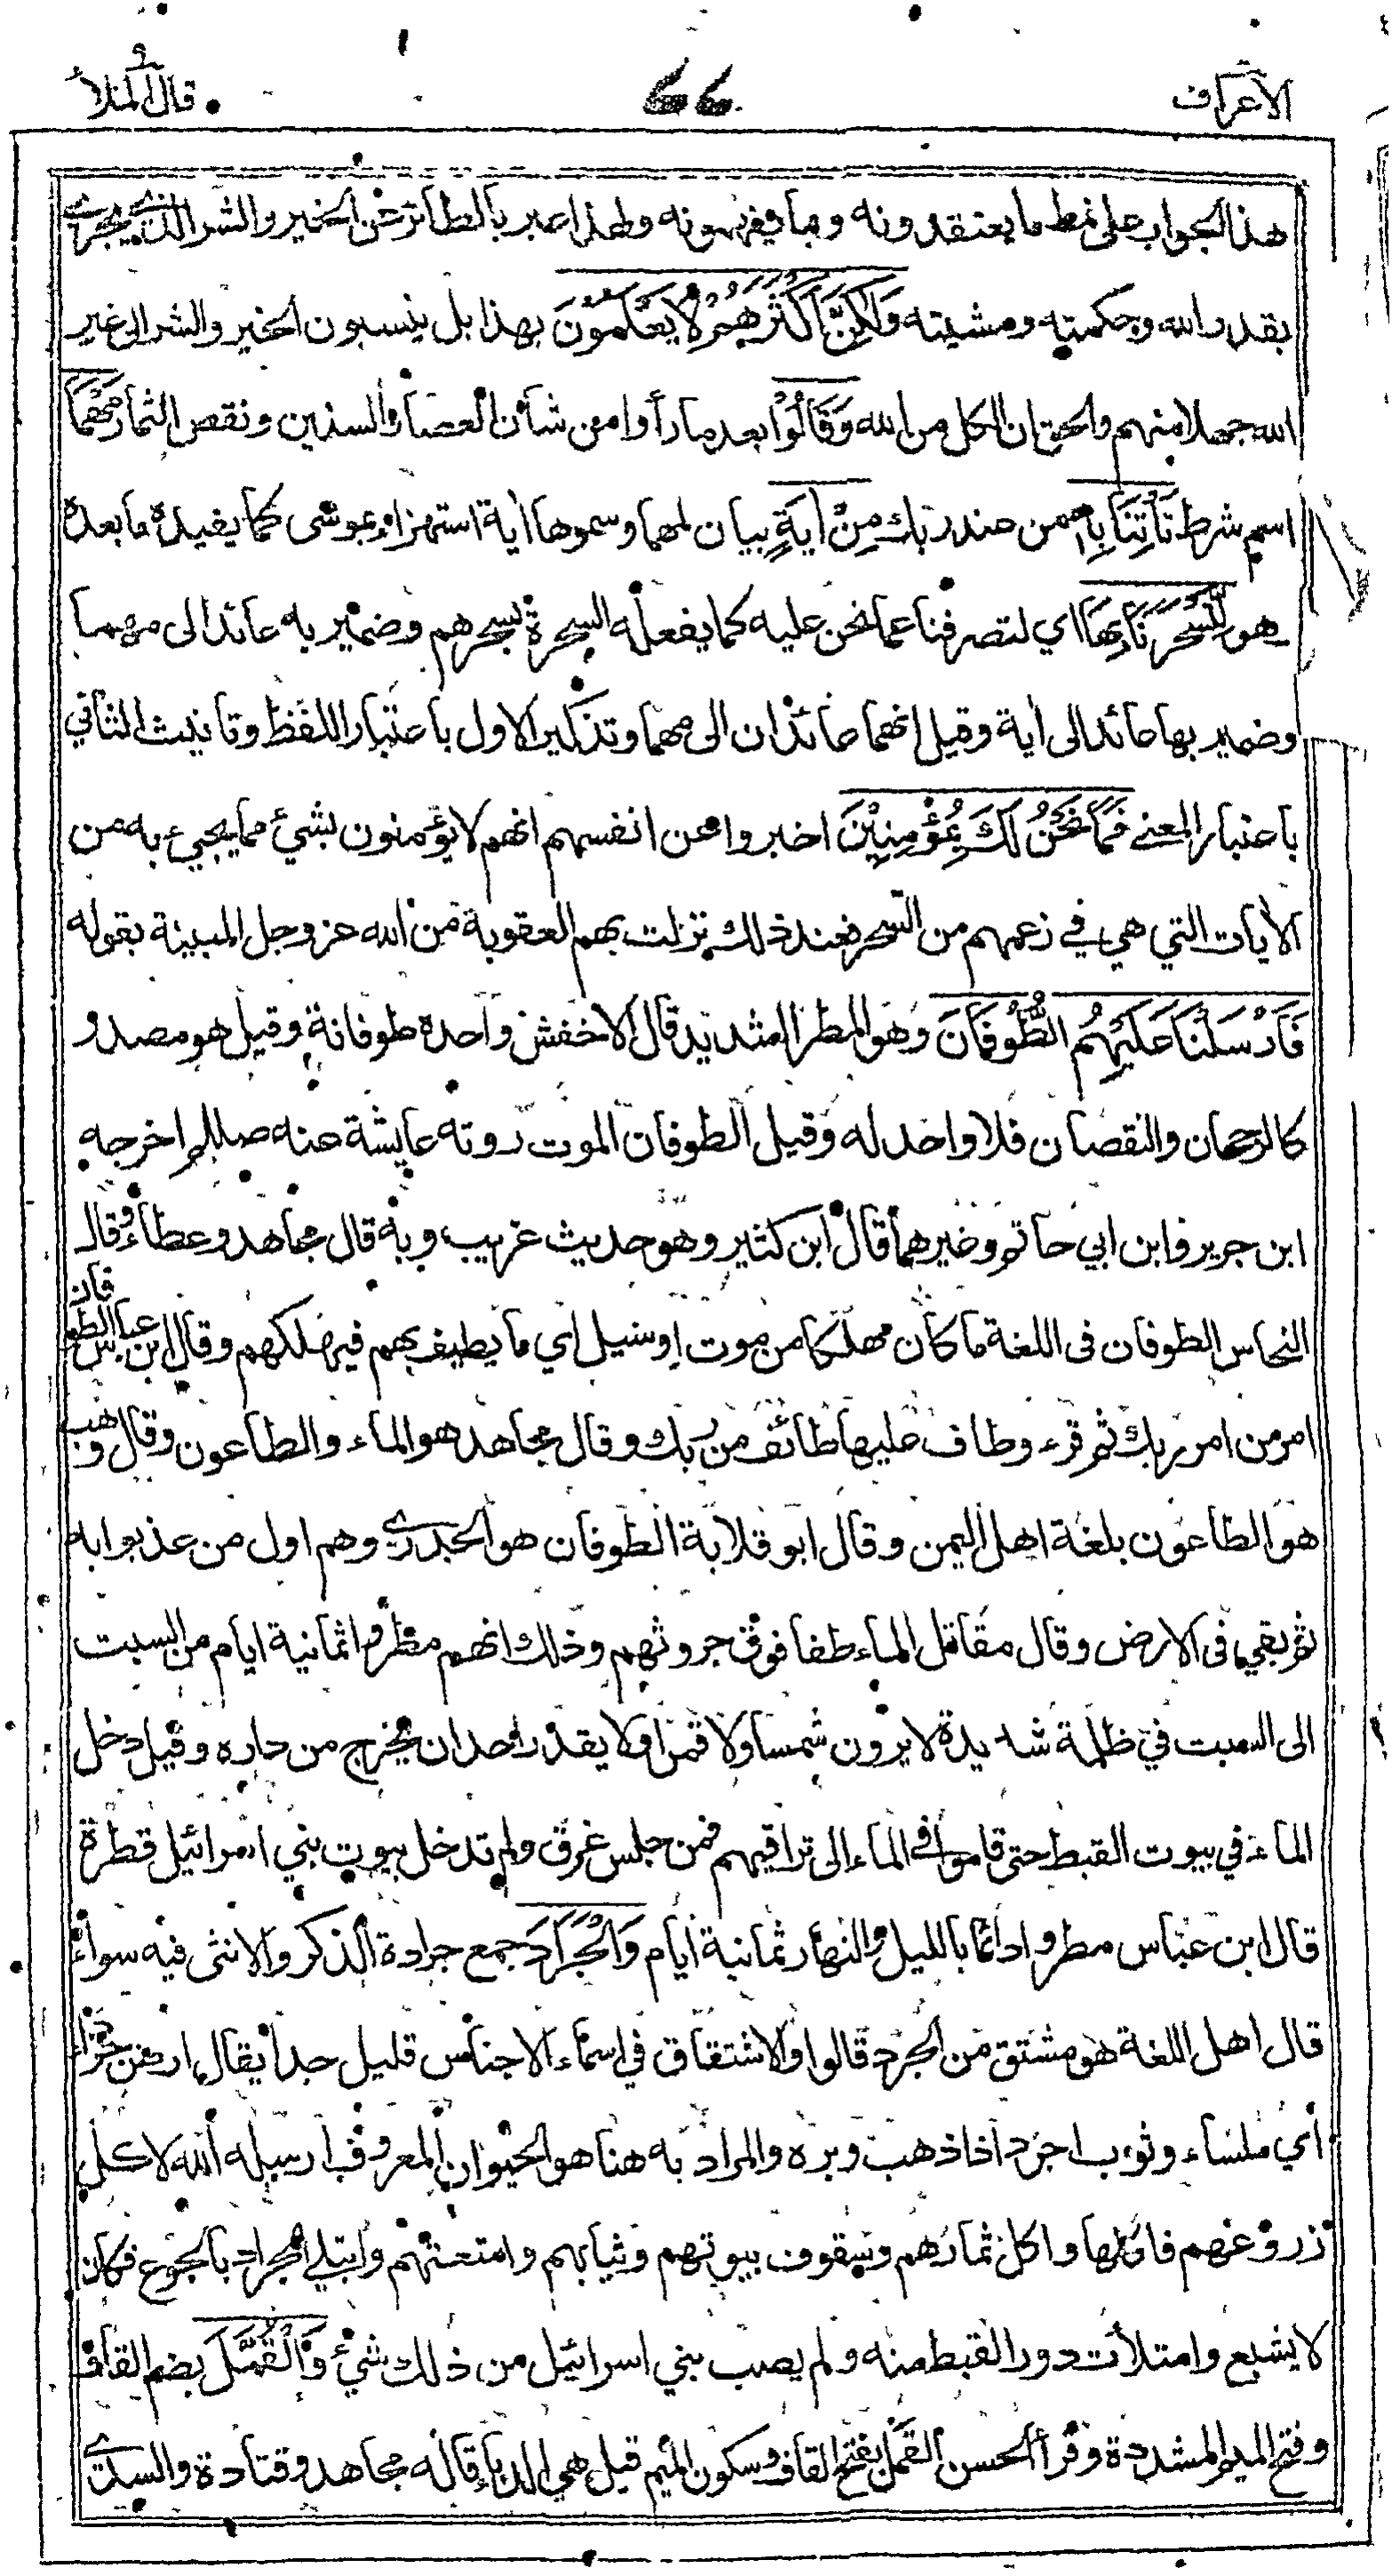 الاعراف
٦٦
قال الملأ
هذا الجواب على نمط ما يعتقدونه وبما يفهمونه ولهذا عبر بالطائر عن الخير والشر الذي يجري
بقدر الله وحكمته ومشيته وَلٰكِنَّ أَكْثَرَهُمْ لَا يَعْلَمُوْنَ بهذا بل ينسبون الخير والشر الى غير
الله جهلا منهم والحق ان الكل من الله وَقَالُوْا بعد ما رأوا من شأن العصا والسنين ونقص الثمار مَهْمَا
اسم شرط تَأْتِنَا بِهٖ من عند ربك مِنْ اٰيَةٍ بيان لمهما وسموها اٰية استهزاء بموسى كما يفيده ما بعده
هو لِتَسْحَرَنَا بِهَا اي لتصرفنا عما نحن عليه كما يفعله السحرة بسحرهم وضمير به عائد الى مهما
وضمير بها عائد الى اٰية وقيل انهما عائدان الى مهما وتذكير الاول باعتبار اللفظ وتانيث الثاني
باعتبار المعنى فَمَا نَحْنُ لَكَ بِمُؤْمِنِيْنَ اخبروا عن انفسهم انهم لا يؤمنون بشيئ مما يجيئ به من
الاٰيات التي هي في زعمهم من السحر فعند ذلك نزلت بهم العقوبة من الله عز وجل المبينة بقوله
فَاَرْسَلْنَا عَلَيْهِمُ الطُّوْفَانَ وهو المطر الشديد قال الاخفش واحده طوفانة وقيل هو مصدر
كالرجحان والنقصان فلا واحد له وقيل الطوفان الموت روته عايشة عنه صللم اخرجه
ابن جرير وابن ابي حاتم وغيرهما قال ابن كثير وهو حديث غريب وبه قال مجاهد وعطاء وقال
النحاس الطوفان فى اللغة ما كان مهلكا من موت او سيل اي ما يطيف بهم فيهلكهم وقال ابن عباس الطوفان
امر من امر ربك ثم قرء وطاف عليها طائف من ربك وقال مجاهد هو الماء والطاعون وقال وهب
هو الطاعون بلغة اهل اليمن وقال ابو قلابة الطوفان هو الجدري وهم اول من عذبوا به
ثم بقي فى الارض وقال مقاتل الماء طفا فوق حروثهم وذلك انهم مطروا ثمانية ايام من السبت
الى السبت في ظلمة شديدة لا يرون شمسا ولا قمرا ولا يقدر احد ان يخرج من داره وقيل دخل
الماء في بيوت القبط حتى قاموا في الماء الى تراقيهم فمن جلس غرق ولم تدخل بيوت بني اسرائيل قطرة
قال ابن عباس مطروا دائما بالليل والنهار ثمانية ايام وَالْجَرَادَ جمع جرادة الذكر والانثى فيه سواء
قال اهل اللغة هو مشتق من الجرد قالوا والاشتقاق في اسماء الاجناس قليل جدا يقال ارض جرداء
أي ملساء وثوب اجرد اذا ذهب وبره والمراد به هنا هو الحيوان المعروف ارسله الله لاكل
زروعهم فاكلها واكل ثمارهم وسقوف بيوتهم وثيابهم وامتعتهم وابتلي الجراد بالجوع فكان
لا يشبع وامتلأت دور القبط منه ولم يصب بني اسرائيل من ذلك شيئ وَالْقُمَّلَ بضم القاف
وفتح الميم المشددة وقرأ الحسن القمل بفتح القاف وسكون الميم قيل هي الدبا قاله مجاهد وقتادة والسدي